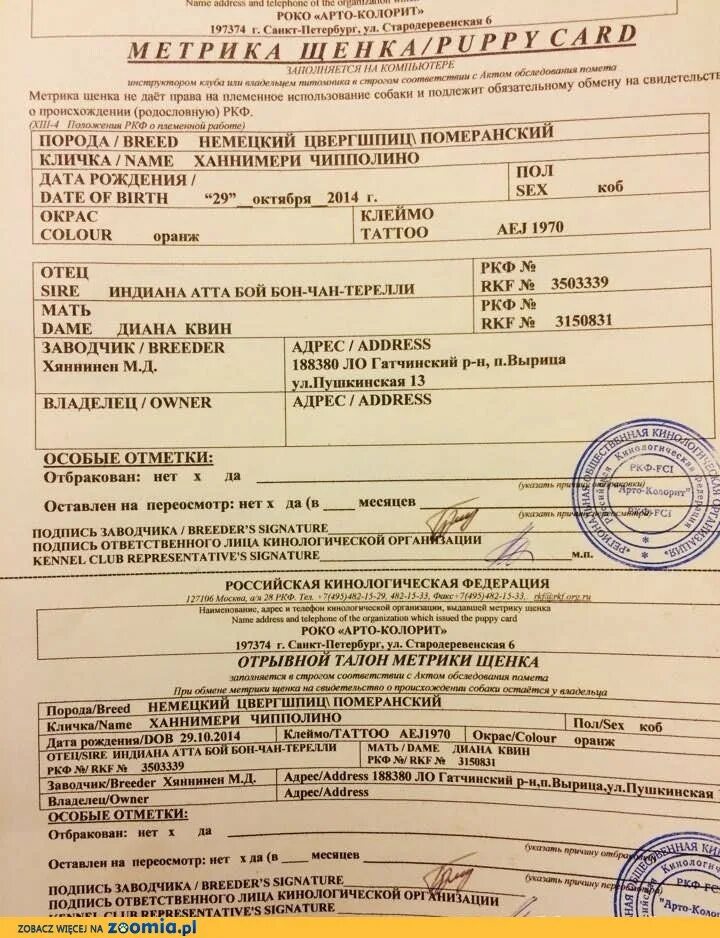 Name address and telephone of the organization which
РОКО «АРТО-КОЛОРИТ»
197374 г. Санкт-Петербург, ул. Стародеревенская 6
МЕТРИКА ЩЕНКА/PUPPY CARD
ЗАПОЛНЯЕТСЯ НА КОМПЬЮТЕРЕ
инструктором клуба или владельцем питомника в строгом соответствии с Актом обследования помета
Метрика щенка не даёт права на племенное использование собаки и подлежит обязательному обмену на свидетельств
о происхождении (родословную) РКФ.
(XIII-4 Положения РКФ о племенной работе)
ПОРОДА / BREED НЕМЕЦКИЙ ЦВЕРГШПИЦ\ ПОМЕРАНСКИЙ
КЛИЧКА / NAME ХАННИМЕРИ ЧИППОЛИНО
ДАТА РОЖДЕНИЯ /
DATE OF BIRTH “29”__октября__2014 г.
ПОЛ
SEX коб
ОКРАС
COLOUR оранж
КЛЕЙМО
TATTOO AEJ 1970
ОТЕЦ
SIRE ИНДИАНА АТТА БОЙ БОН-ЧАН-ТЕРЕЛЛИ
РКФ №
RKF № 3503339
МАТЬ
DAME ДИАНА КВИН
РКФ №
RKF № 3150831
ЗАВОДЧИК / BREEDER
Хяннинен М.Д.
АДРЕС / ADDRESS
188380 ЛО Гатчинский р-н, п.Вырица
ул.Пушкинская 13
ВЛАДЕЛЕЦ / OWNER
АДРЕС / ADDRESS
ОСОБЫЕ ОТМЕТКИ:
Отбракован: нет х да
(указать причину отбраковки)
Оставлен на пересмотр: нет х да (в ___ месяцев
(указать причину пересмотра)
ПОДПИСЬ ЗАВОДЧИКА / BREEDER'S SIGNATURE
ПОДПИСЬ ОТВЕТСТВЕННОГО ЛИЦА КИНОЛОГИЧЕСКОЙ ОРГАНИЗАЦИИ
KENNEL CLUB REPRESENTATIVE'S SIGNATURE
м.п.
РЕГИОНАЛЬНАЯ ОБЩЕСТВЕННАЯ КИНОЛОГИЧЕСКАЯ ОРГАНИЗАЦИЯ
Российская Кинологическая Федерация
РКФ-FCI
"Арто-Колорит"
РКФ-FCI
РОССИЙСКАЯ КИНОЛОГИЧЕСКАЯ ФЕДЕРАЦИЯ
127106 Москва, а/я 28 РКФ. Тел. +7(495)482-15-29, 482-15-33, Факс+7(495)482-15-33, rkf@rkf.org.ru
Наименование, адрес и телефон кинологической организации, выдавшей метрику щенка
Name address and telephone of the organization which issued the puppy card
РОКО «АРТО-КОЛОРИТ»
197374 г. Санкт-Петербург, ул. Стародеревенская 6
ОТРЫВНОЙ ТАЛОН МЕТРИКИ ЩЕНКА
заполняется в строгом соответствии с Актом обследования помета
При обмене метрики щенка на свидетельство о происхождении собаки остаётся у владельца
Порода/Breed НЕМЕЦКИЙ ЦВЕРГШПИЦ\ ПОМЕРАНСКИЙ
Кличка/Name ХАННИМЕРИ ЧИППОЛИНО
Пол/Sex коб
Дата рождения/DOB 29.10.2014 Клеймо/TATTOO AEJ1970 Окрас/Colour оранж
ОТЕЦ/SIRE ИНДИАНА АТТА БОЙ БОН-ЧАН-ТЕРЕЛЛИ
РКФ №/ RKF № 3503339
МАТЬ / DAME ДИАНА КВИН
РКФ №/ RKF № 3150831
Заводчик/Breeder Хяннинен М.Д. Адрес/Address 188380 ЛО Гатчинский р-н,п.Вырица,ул.Пушкинская
Владелец/Owner Адрес/Address
ОСОБЫЕ ОТМЕТКИ:
Отбракован: нет х да
(указать причину
Оставлен на пересмотр: нет х да (в ___ месяцев
(указать причину
ПОДПИСЬ ЗАВОДЧИКА / BREEDER'S SIGNATURE
ПОДПИСЬ ОТВЕТСТВЕННОГО ЛИЦА КИНОЛОГИЧЕСКОЙ ОРГАНИЗАЦИИ
KENNEL CLUB REPRESENTATIVE'S SIGNATURE
РКФ-FC
"Арто-Коло
ZOBACZ WIĘCEJ NA zoomia.pl